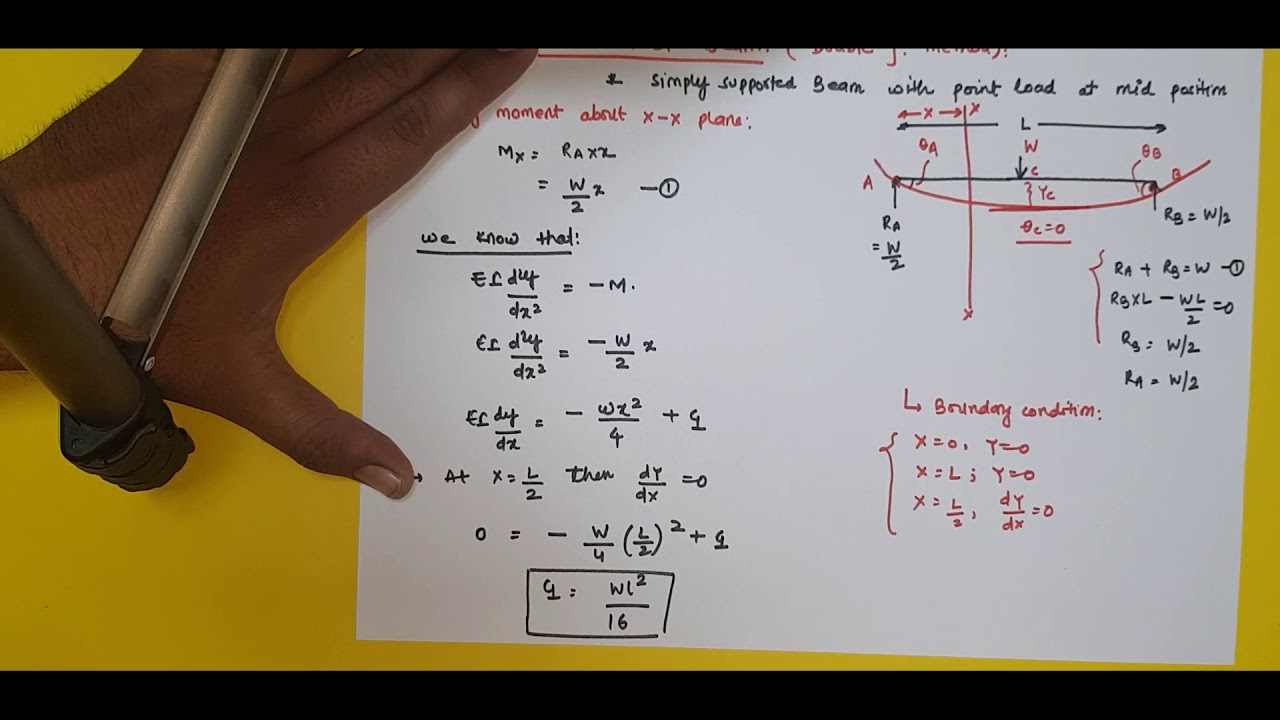 Beam (Double
* Simply supported Beam with point load at mid position
moment about x-x plane:
Mx = RA × x
= W/2 x —①
we know that:
EI d²y/dx² = -M.
EI d²y/dx² = -W/2 x
EI dy/dx = - wx²/4 + C₁
→ At x = L/2 then dY/dx = 0
0 = - W/4 (L/2)² + C₁
C₁ = WL²/16
x x
L
W
θA
θB
A
C
B
Yc
RA = W/2
θc=0
RB = W/2
x
RA + RB = W —①
RB×L - WL/2 = 0
RB = W/2
RA = W/2
↳ Boundary condition:
X=0, Y=0
X=L; Y=0
X = L/2, dY/dx = 0